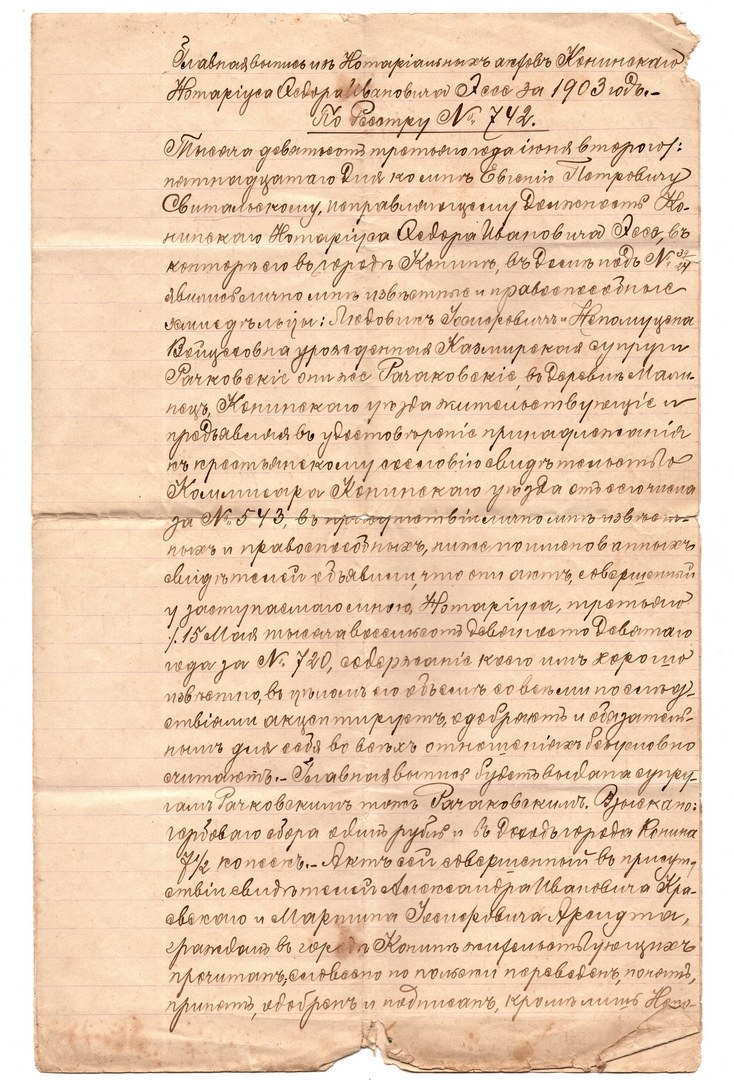 Главная выпись изъ Нотаріальныхъ актовъ Конинскаго
Нотаріуса Ѳедора Ивановича Эссе за 1903 годъ.-
По Реэстру № 742.
Тысяча девятьсотъ третьяго года іюня второго/:
пятнадцатаго дня ко мнѣ Евгенію Петровичу
Свитальскому, исправляющему Должность Ко-
нинскаго Нотаріуса Ѳедора Ивановича Эссе, въ
контору его въ городѣ Конинѣ, въ Домѣ подъ №
явились лично мнѣ извѣстные и правоспособные
землевладѣльцы: Людовикъ и Непомуцена
Войцеховна урожденная Казмирская супруги
Рачковскіе они же Рачаковскіе, въ деревнѣ Мали-
нецъ, Конинскаго уѣзда жительствующіе и
предъявляя въ удостовѣреніе принадлежанія
къ крестьянскому сословію свидѣтельство
Коммисара Конинскаго уѣзда отъ сего числа
за № 543, въ присутствіи лично мнѣ извѣст-
ныхъ и правоспособныхъ, ниже поименованныхъ
свидѣтелей объявили, что они актъ, совершенный
у заступаемаго мною Нотаріуса, третьяго
/:15 Мая тысяча восемьсотъ девяносто Девятаго
года за № 720, содержаніе коего имъ хорошо
извѣстно, въ цѣломъ его объемѣ со всѣми послѣд-
ствіями акцептируютъ, одобряютъ и обязатель-
нымъ для себя во всѣхъ отношеніяхъ безусловно
считаютъ.- Главная выпись будетъ выдана супру-
гамъ Рачковскимъ тожъ Рачаковскимъ. Взыскано:
гербоваго сбора одинъ рубль и въ Доходъ города Конина
7½ копѣекъ.- Актъ сей совершенный въ присут-
ствіи свидѣтелей Александра Ивановича Кра-
евскаго и Мартина Арендта,
гражданъ въ городѣ Конинѣ жительствующихъ
прочитанъ, словесно по польски переведенъ, понятъ,
принятъ, одобренъ и подписанъ, кромѣ лишь Непо-